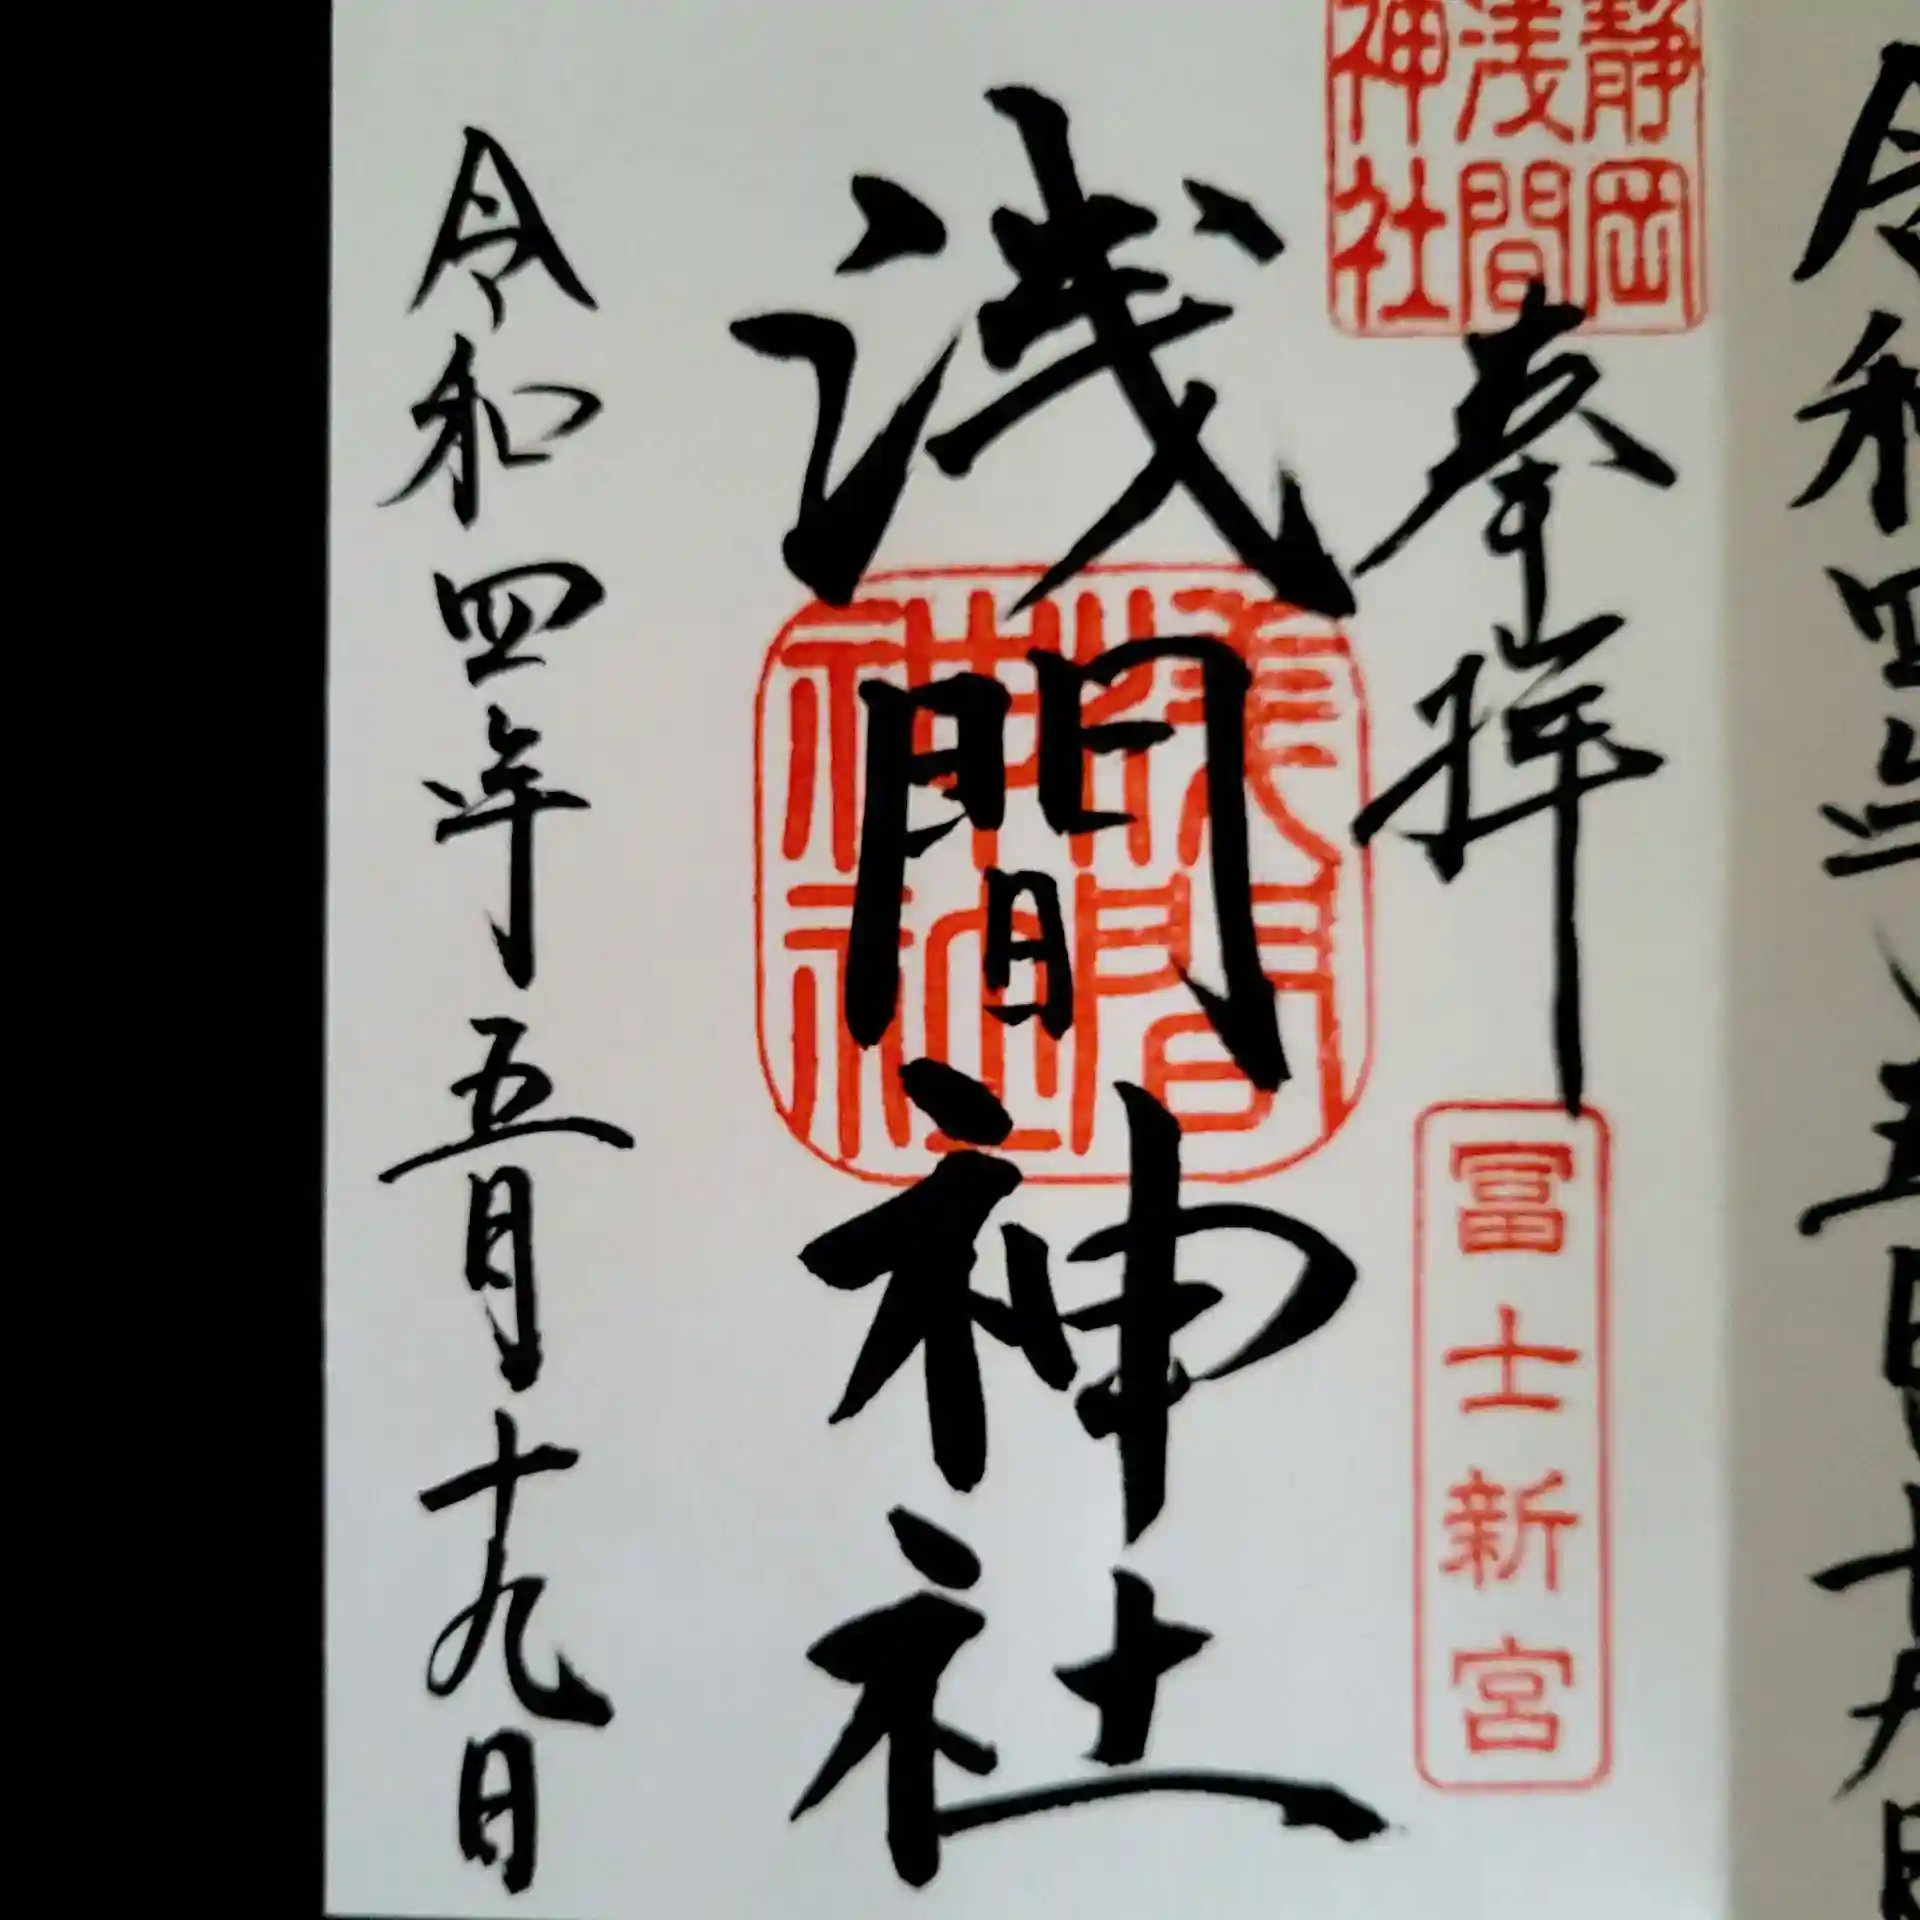 令和四年五月十九日
静岡
浅間
神社
奉拝
冨士新宮
浅間神社
浅間
神社
令和四年五月十九日